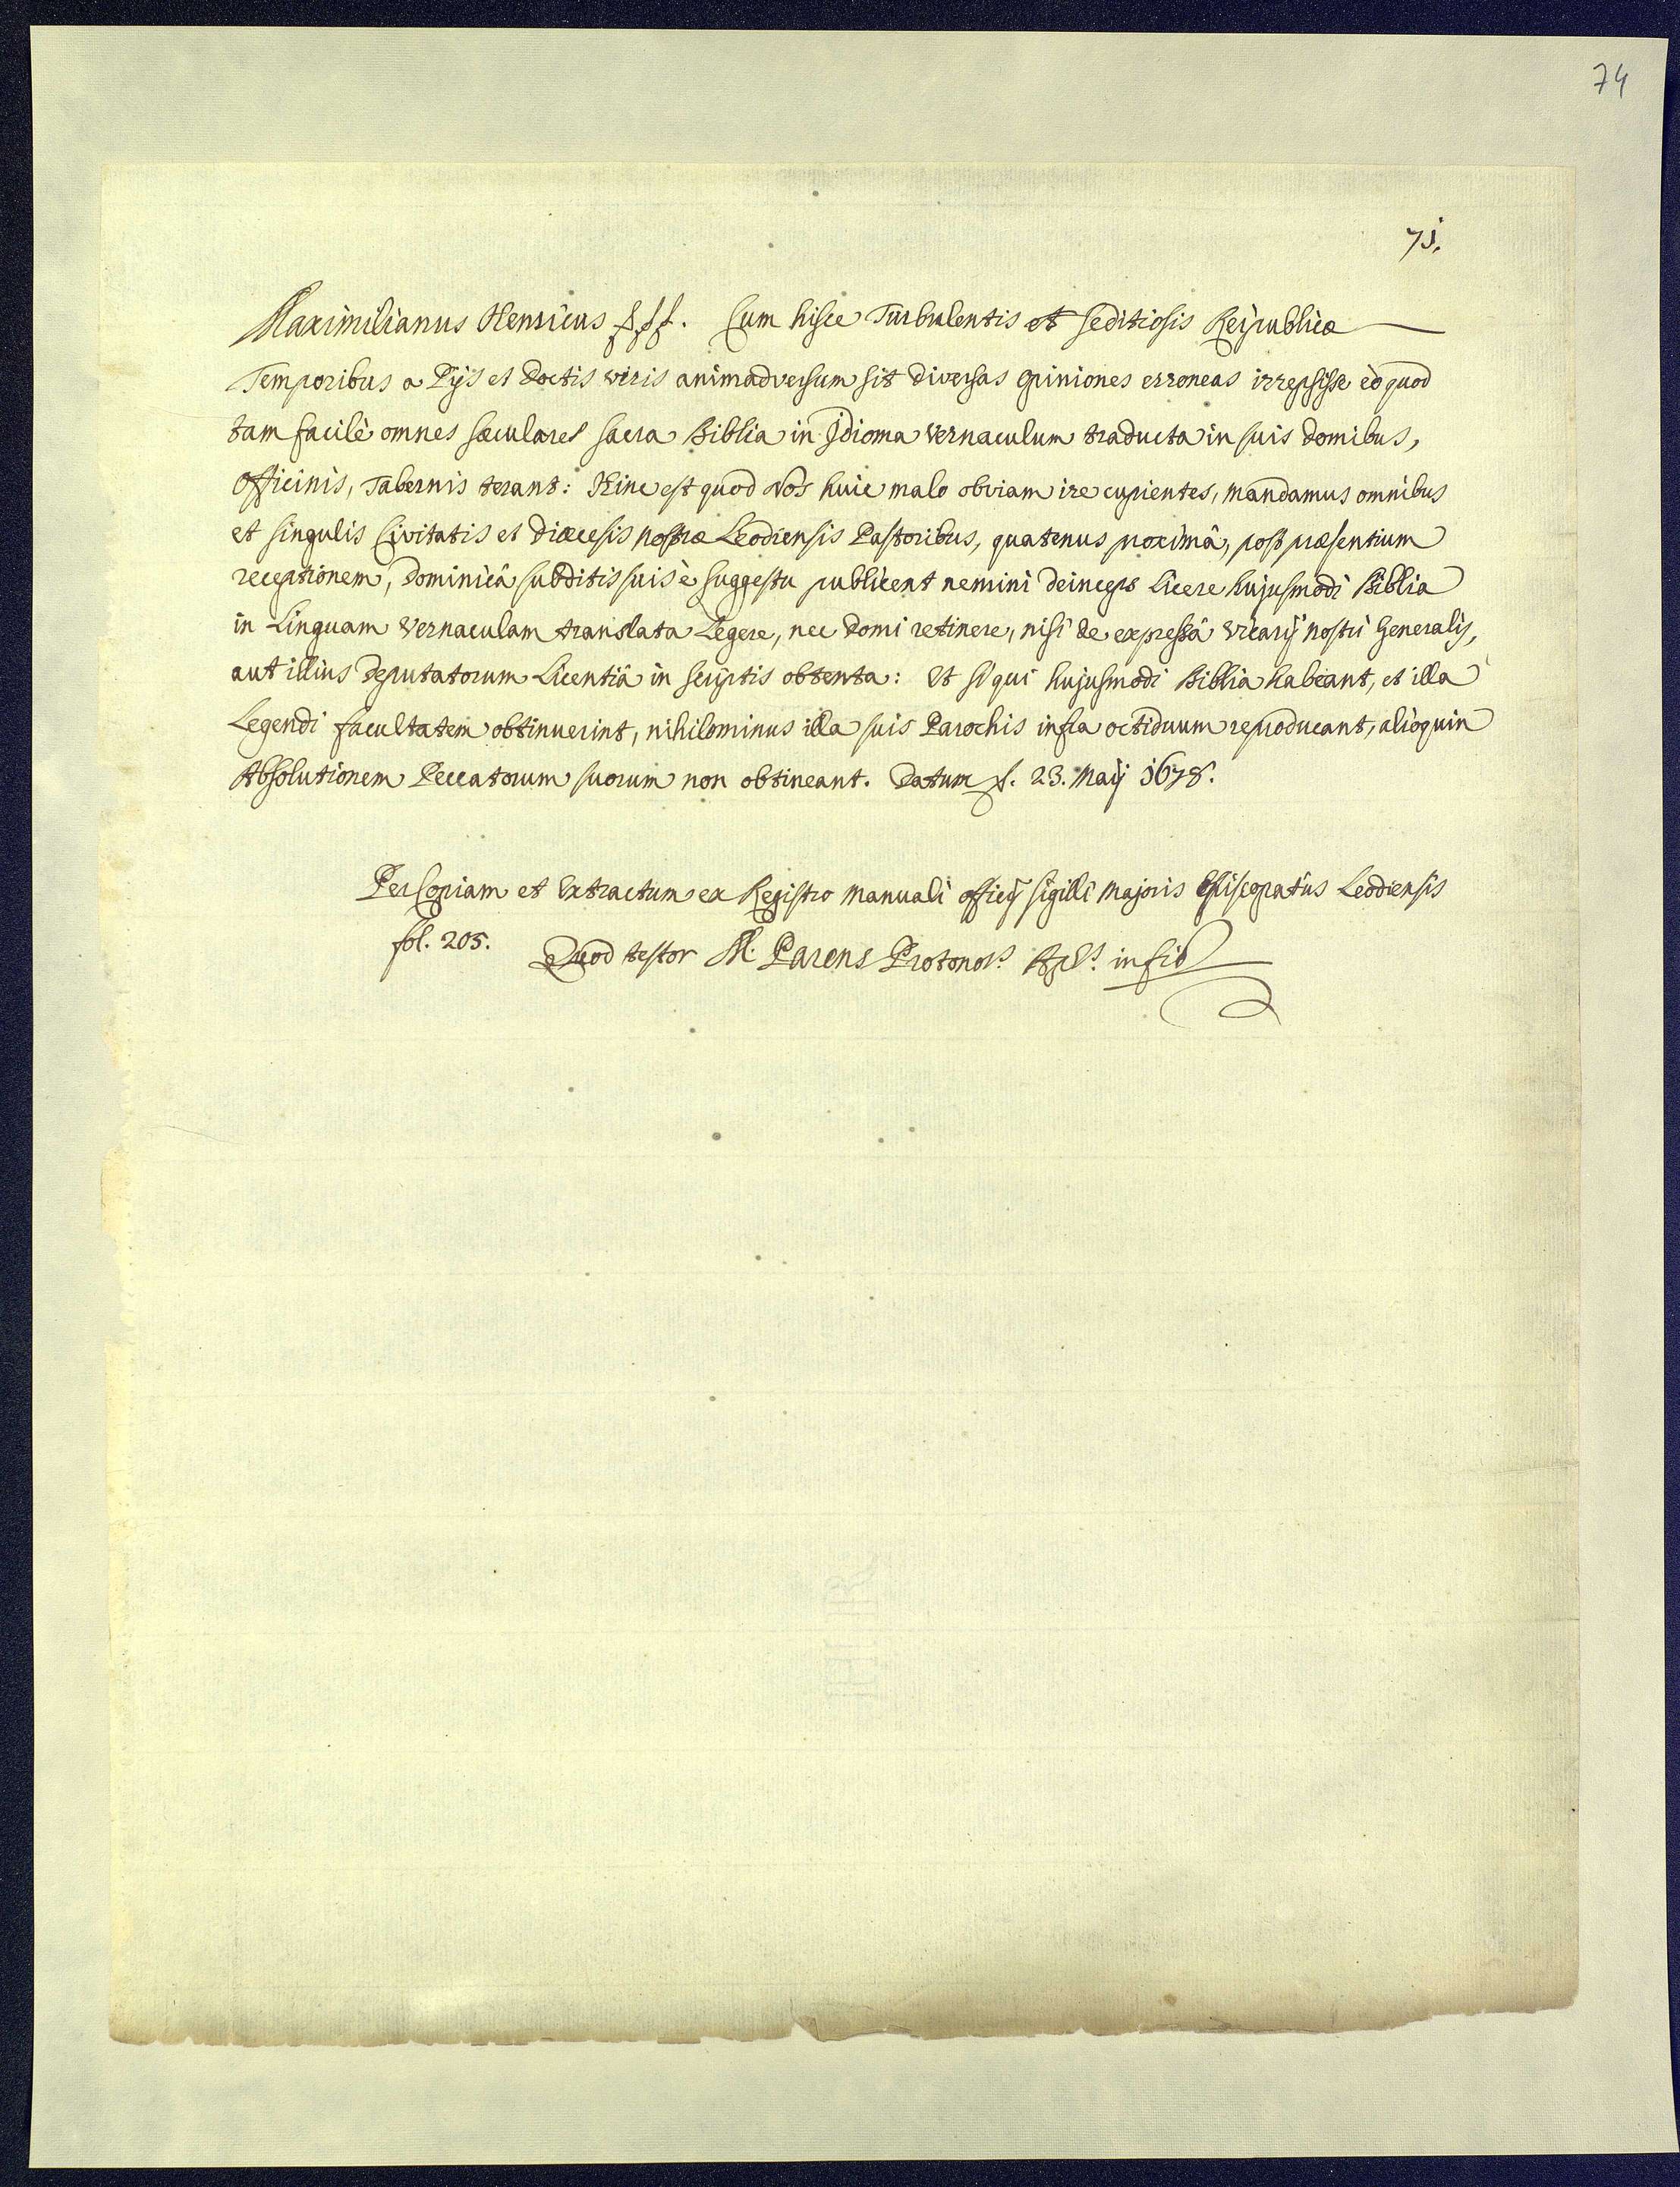 74
71.
Maximilianus Henricus &&&. Cum hisce Turbulentis et seditiosis Reipublicæ
Temporibus a Pijs et Doctis viris animadversum sit diversas opiniones erroneas irrepsisse eò quod
tam facilè omnes sæculares sacra Biblia in Idioma vernaculum traducta in suis domibus,
officinis, Tabernis terant: Hinc est quod Nos huic malo obviam ire cupientes, mandamus omnibus
et singulis Civitatis et Diœcesis nostræ Leodiensis Pastoribus, quatenus proximâ, post præsentium
receptionem, Dominicâ subditis suis è suggestu publicent nemini deinceps licere hujusmodi Biblia
in Linguam vernaculam translata Legere, nec domi retinere, nisi de expressâ vicarij nostri Generalis,
aut illius Deputatorum Licentiâ in scriptis obtenta: Et si qui hujusmodi Biblia habeant, et illa
Legendi facultatem obtinuerint, nihilominus illa suis Parochis infra octiduum reproducant, alioquin
Absolutionem Peccatorum suorum non obtineant. Datum &. 23. Maij 1678.
Per Copiam et Extractum ex Registro manuali officij sigilli majoris Episcopatus Leodiensis
fol. 205. Quod testor M. Parens Protonors. Apls. in fid